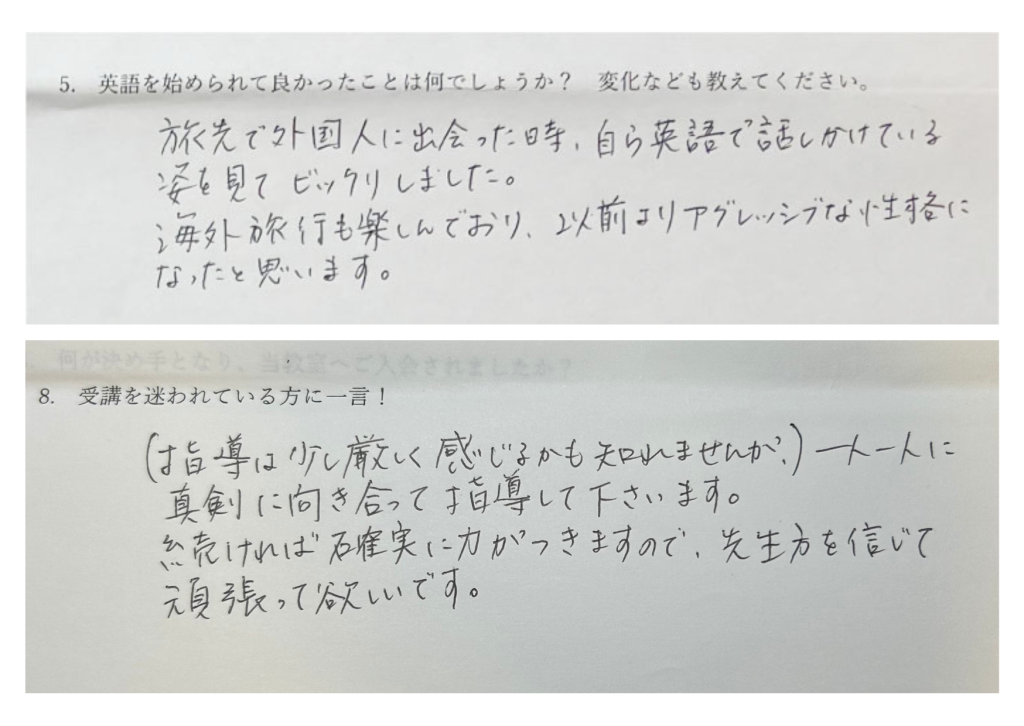 5. 英語を始められて良かったことは何でしょうか？ 変化なども教えてください。
旅先で外国人に出会った時、自ら英語で話しかけている
姿を見て ビックリしました。
海外旅行も楽しんでおり、以前よりアグレッシブな性格に
なったと思います。
何が決め手となり、当教室へご入会されましたか？
8. 受講を迷われている方に一言！
(指導は少し厳しく感じるかも知れませんが、) 一人一人に
真剣に向き合って指導して下さいます。
続ければ確実に力がつきますので、先生方を信じて
頑張って欲しいです。